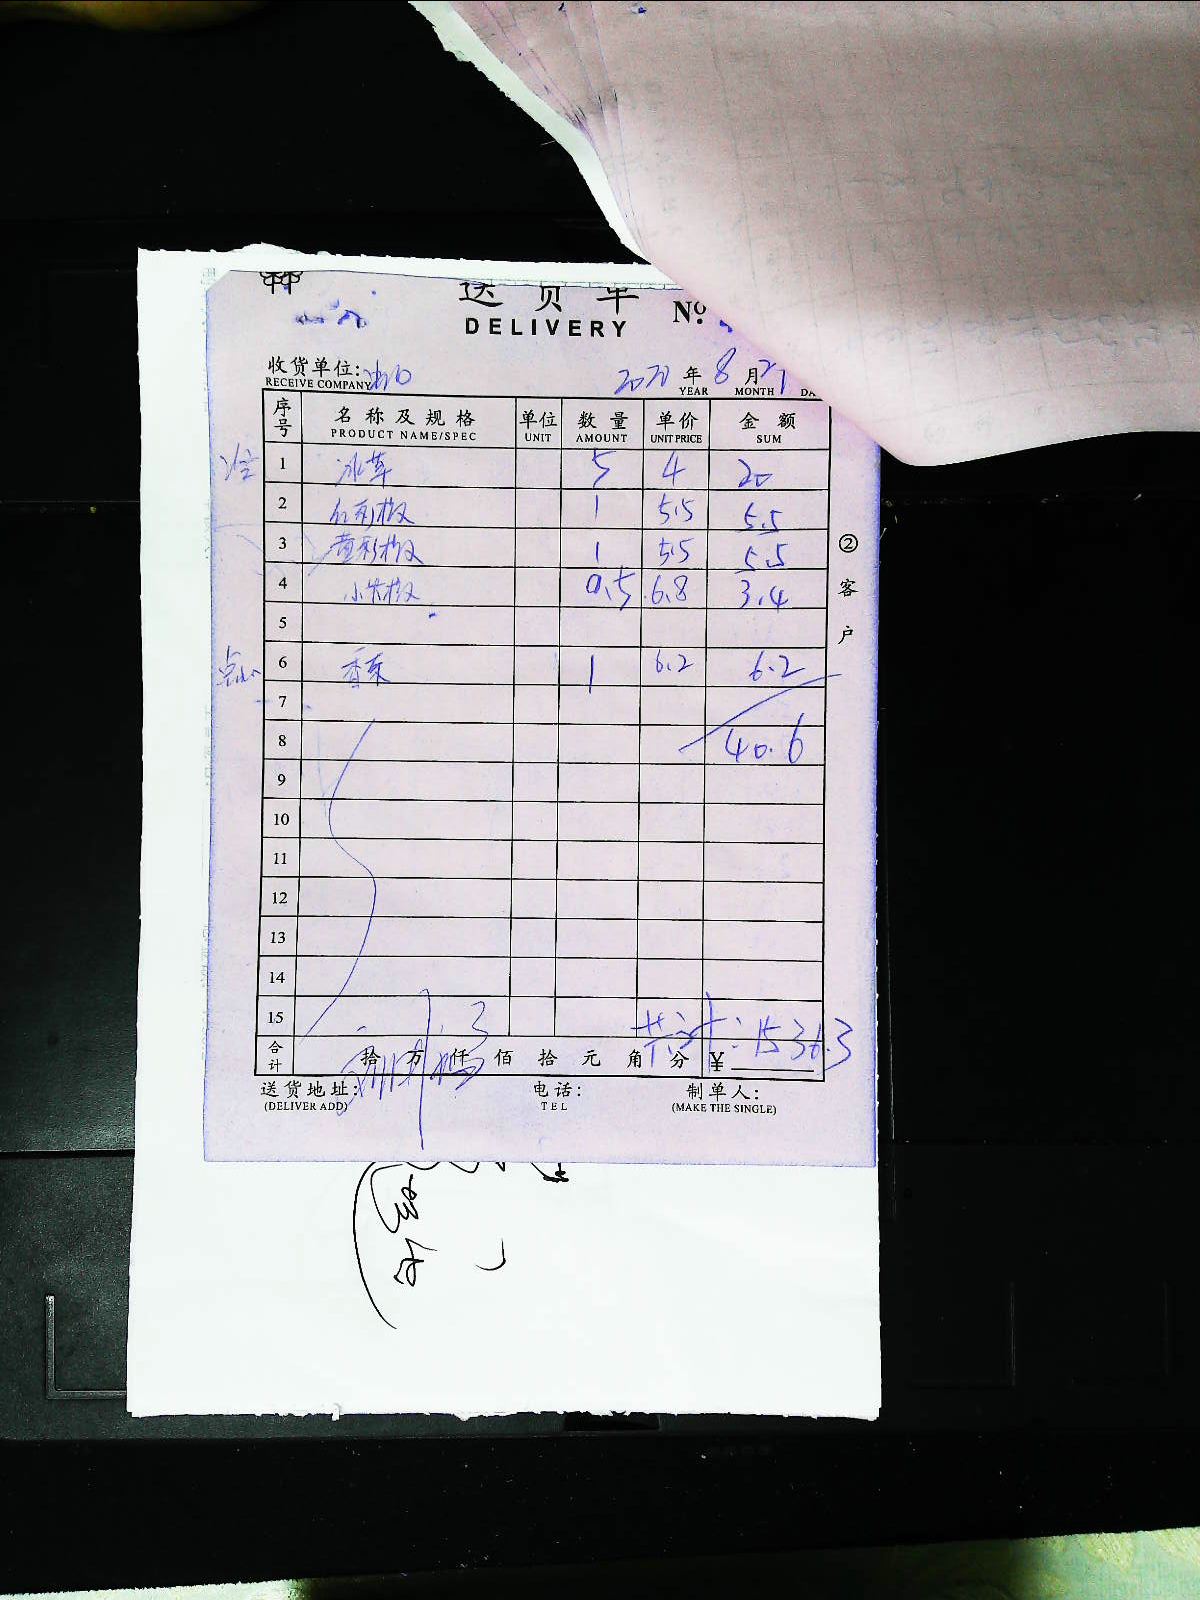 送货单
DELIVERY
No.
收货单位:
RECEIVE COMPANY
年 8 月
YEAR MONTH DA
序号 名称及规格 单位 数量 单价 金额
PRODUCT NAME/SPEC UNIT AMOUNT UNIT PRICE SUM
1 冰草 5 4 20
2 红彩椒 1 5.5 5.5
3 黄彩椒 1 5.5 5.5
4 小米椒 0.5 6.8 3.4
5
点心 6 香菜 1 6.2 6.2
7
8 40.6
9
10
11
12
13
14
15
共计:1536.3
合计 拾 万 仟 佰 拾 元 角 分 ¥
送货地址: 电话: 制单人:
(DELIVER ADD) TEL (MAKE THE SINGLE)
②客户